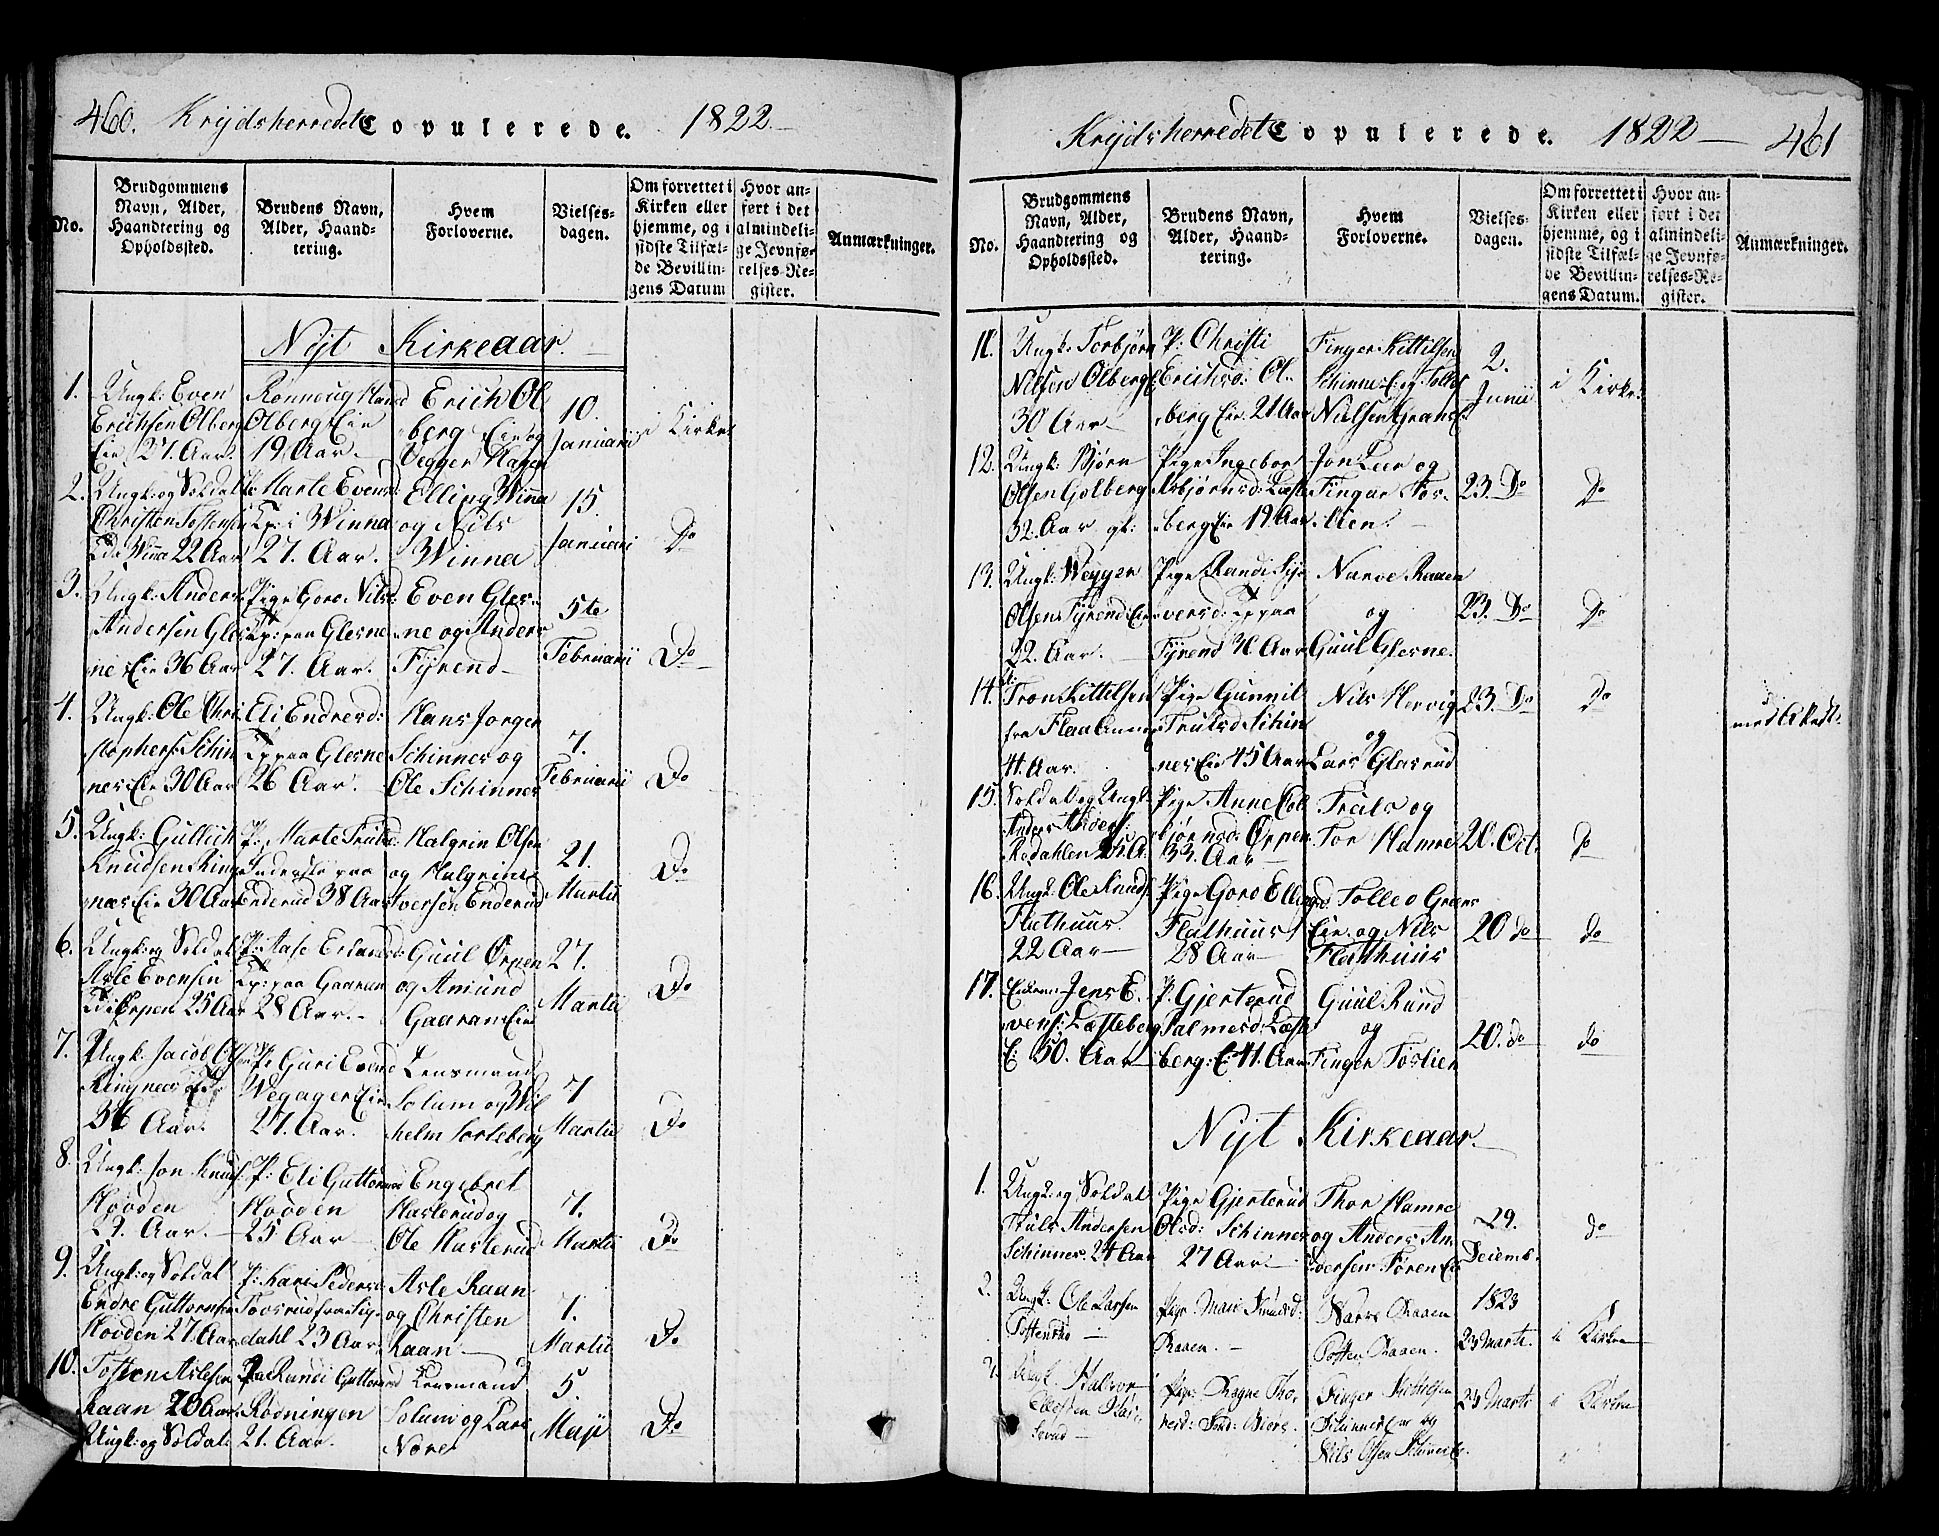 460. Krydsherredet Copulerede. 1822 —
No.
Brudgommens Navn, Alder, Haandtering og Opholdssted.
Brudens Navn, Alder, Haandtering.
Hvem Forloverne.
Vielsesdagen.
Om forrettet i Kirken eller hjemme, og i sidste Tilfælde Bevillingens Datum
Hvor anført i det almindelige Jevnførelses-Register.
Anmærkninger.
Nyt Kirkeaar. —
1.
Ungk: Even
Erichsen Ølberg
Eie 27. Aar.
Rønnoug
Ølberg Eie
19. Aar. —
Erich Øl
berg Eie og
Vegger Hagen
10.
Januarii
i Kirke
2.
Ungk: og Soldat
Christen Tostensen
Winna 22 Aar
Marte Evens
i Winna
27. Aar.
Elling Winna
og Nils
Winna
15
Januari
Do
3.
Ungk: Anders
Andersen Gles
ne Eie 36 Aar
Pige Goro Nilsd:
paa Glesne
27. Aar.
Even Gles
ne og Anders
Fyrend —
5te
Februarii
Do
4.
Ungk: Ole Chri
stophers: Schin
nes Eie 30 Aar
Eli Endresd:
paa Glesne
26 Aar.
Hans Jorgen
Schinnes og
Ole Schinnes
7.
Februarii
Do
5.
Ungk: Gullich
Knudsen Ring
nes Eie 30 Aar
P: Marte Trulsd:
Inderste paa
Enderud 38 Aar
Halgrin Olsen
og Halgrin
Iversen Enderud
21.
Martii
Do
6.
Ungk: og Soldat
Asle Evensen
Ørpen 25 Aar
P: Aase
paa Gaaraen
28 Aar. —
Guul Ørpen
og Amund
Gaaraen Eie
27.
Martii
Do
7.
Ungk: Jacob
Ringnes
36 Aar.
P: Guri Evensd
Wegager Eie
27. Aar.
Lensmand
Solum og Wil
helm Sorteberg
7
Martii
Do
8.
Ungk: Jon Knuds:
Hovden
29. Aar. —
P: Eli Guttorms
Hovden
25 Aar —
Engebret
Haslerud og
Ole Haslerud
7.
Martii
Do
9.
Ungk: og Soldat
Endre Guttormsen
Hovden 27. Aar
P: Kari Pedersd
fra Sig
dahl 23 Aar
Asle Raan
og Christen
Raan —
7.
Martii
Do
10.
Tosten Aslesen
Raan 26 Aar
Ungk: og Soldat:
Randi Guttormsd
Rodningen
21. Aar.
Lensmand
Solum og Lars
Nore
5.
Maji
Do
Krydsherredet Copulerede. 1822 — 461
No.
Brudgommens Navn, Alder, Haandtering og Opholdssted.
Brudens Navn, Alder, Haandtering.
Hvem Forloverne.
Vielsesdagen.
Om forrettet i Kirken eller hjemme, og i sidste Tilfælde Bevillingens Datum.
Hvor anført i det almindelige Jevnførelses-Register.
Anmærkninger.
11.
Ungk: Torbjørn
Nilsen Ølberg
30 Aar —
P: Christi
Erichsd: Øl
berg Eie 21 Aar
Finger Kittilsen
Schinnes E: og Tollef
Nielsen
2.
Junii
i Kirke:
12.
Ungk: Bjørn
Olsen Golberg
32. Aar gl:
Pige Ingebor
Asbjørnsd: Læste
berg Eie 19 Aar
Jon Leer og
Fingar Tos
lien. —
23. Do
Do
13.
Ungk: Wegger
Olsen Fyrend: Eie
22. Aar. —
Pige Randi Sy
versd: paa
Fyrend 41 Aar
Narve Raaen
og
Guul Glesne.
23. Do
Do
14.
Tron Kittelsen
fra Flaa Annex
41. Aar.
Pige Gunnil
Trulsd Schin
nes Eie 45 Aar
Nils Hervig
og
Lars Glasrud
23. Do
Do
15.
Soldat og Ungk:
Anders Anders:
Rodahlen 25 A.
Pige Anne Col
bjørnsd: Ørpen
33. Aar —
Truls og
Tor Hamre
20. Oct.
Do
16.
Ungk: Ole Knuds:
Flathuus
22 Aar —
Pige Goro Ellingsd
Flathuus
28 Aar —
Tolleo
Eie. og Nils
Flathuus
20 do
do
17.
Jens E.
vens: Læsteberg
E: 50. Aar
P: Gjerterud
Palmesd: Læste
berg: E: 41. Aar
Guul Rund
og
Finger Toslien
20. do
do
Nyt Kirkeaar. —
1.
Ungk: og Soldat
Truls Andersen
Schinnes. 24 Aar
Pige Gjerterud
Olsd: Schinnes
27 Aar. —
Thor Hamre
og Anders An
dersen
29.
Decemb:
do
2.
Ungk: Ole Larsen
—
Pige Mari Knudsd:
Raaen. —
Narve Raaen
Tosten Raaen.
1823
23 Marti.
i Kirken
Halvor
Ellefsen
Pige Ragne Tho
Finger Kittilsen
Schinnes Eie og
Nils Olsen
23 Marti
i Kirken